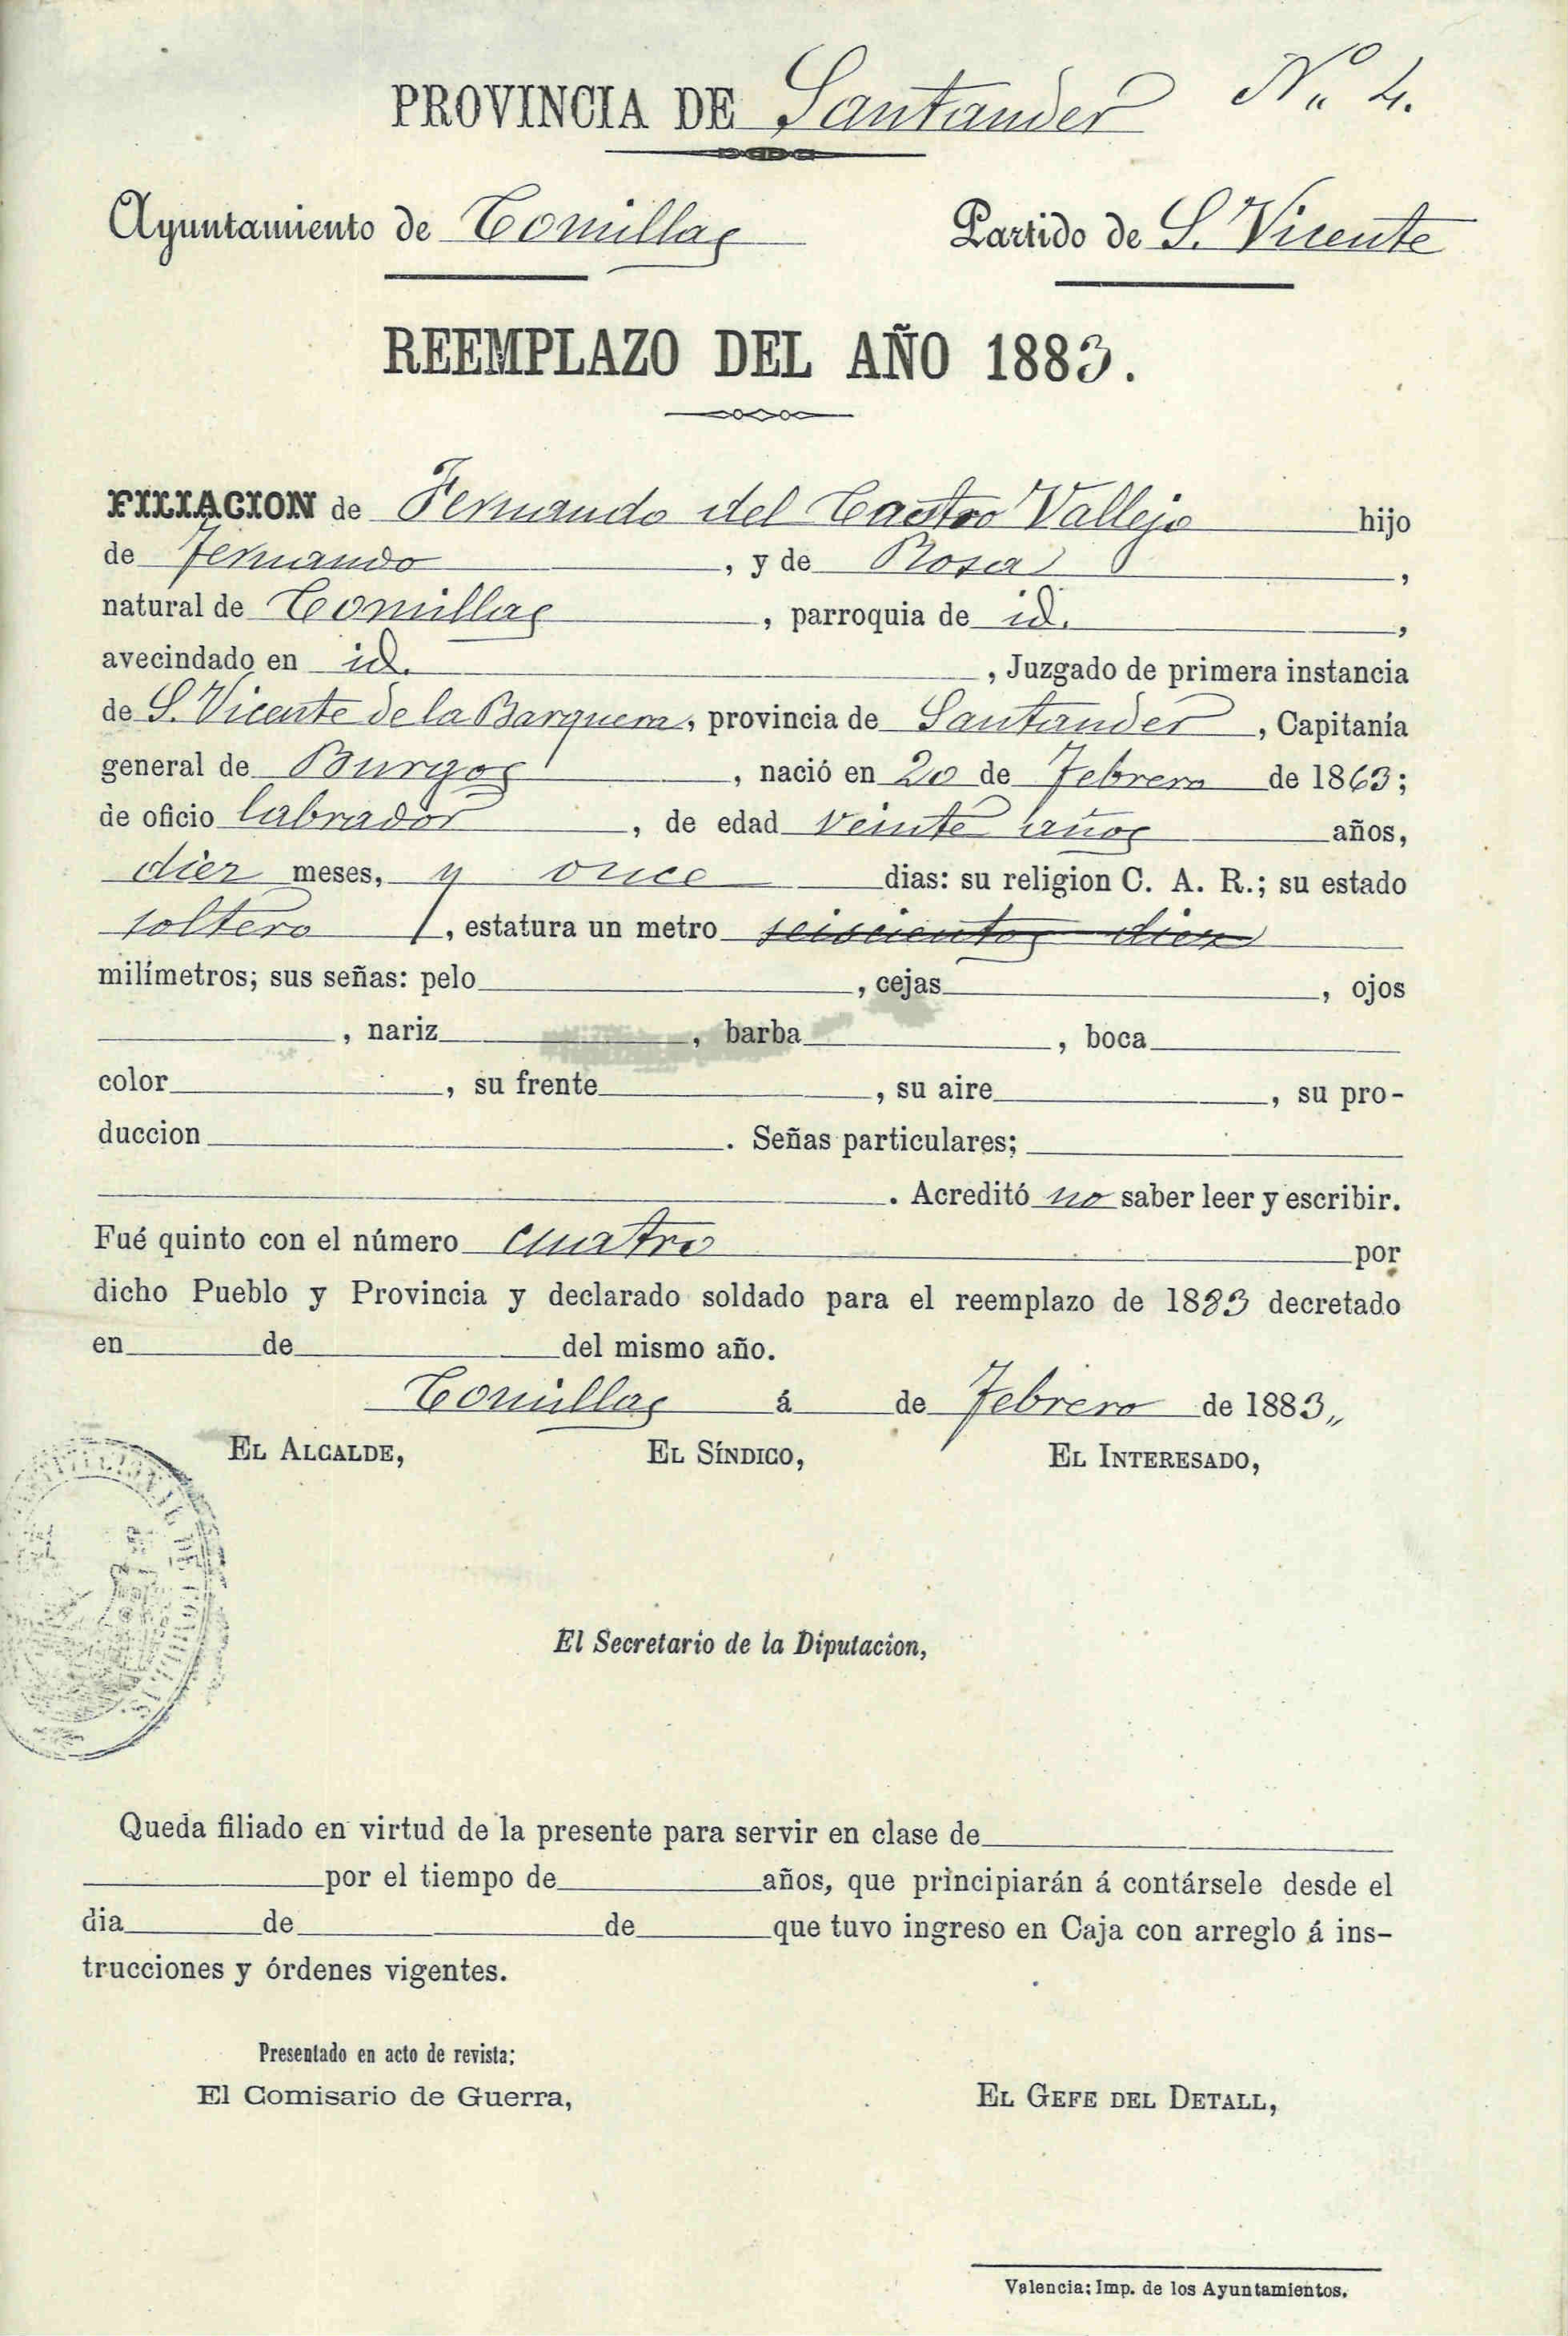 PROVINCIA DE Santander Nº 4.
Ayuntamiento de Comillas Partido de S. Vicente
REEMPLAZO DEL AÑO 1883.
FILIACION de Fernando del Castro Vallejo hijo
de Fernando, y de Rosa,
natural de Comillas, parroquia de id.,
avecindado en id., Juzgado de primera instancia
de S. Vicente de la Barquera, provincia de Santander, Capitanía
general de Burgos, nació en 20 de Febrero de 1863;
de oficio labrador, de edad veinte años años,
diez meses, y once dias: su religion C. A. R.; su estado
soltero, estatura un metro seiscientos diez
milímetros; sus señas: pelo, cejas, ojos
, nariz, barba, boca
color, su frente, su aire, su pro-
duccion. Señas particulares;
. Acreditó no saber leer y escribir.
Fué quinto con el número cuatro por
dicho Pueblo y Provincia y declarado soldado para el reemplazo de 1883 decretado
en de del mismo año.
Comillas á de Febrero de 1883,,
EL ALCALDE, EL SÍNDICO, EL INTERESADO,
El Secretario de la Diputacion,
Queda filiado en virtud de la presente para servir en clase de
por el tiempo de años, que principiarán á contársele desde el
dia de de que tuvo ingreso en Caja con arreglo á ins-
trucciones y órdenes vigentes.
Presentado en acto de revista;
El Comisario de Guerra, EL GEFE DEL DETALL,
Valencia: Imp. de los Ayuntamientos.